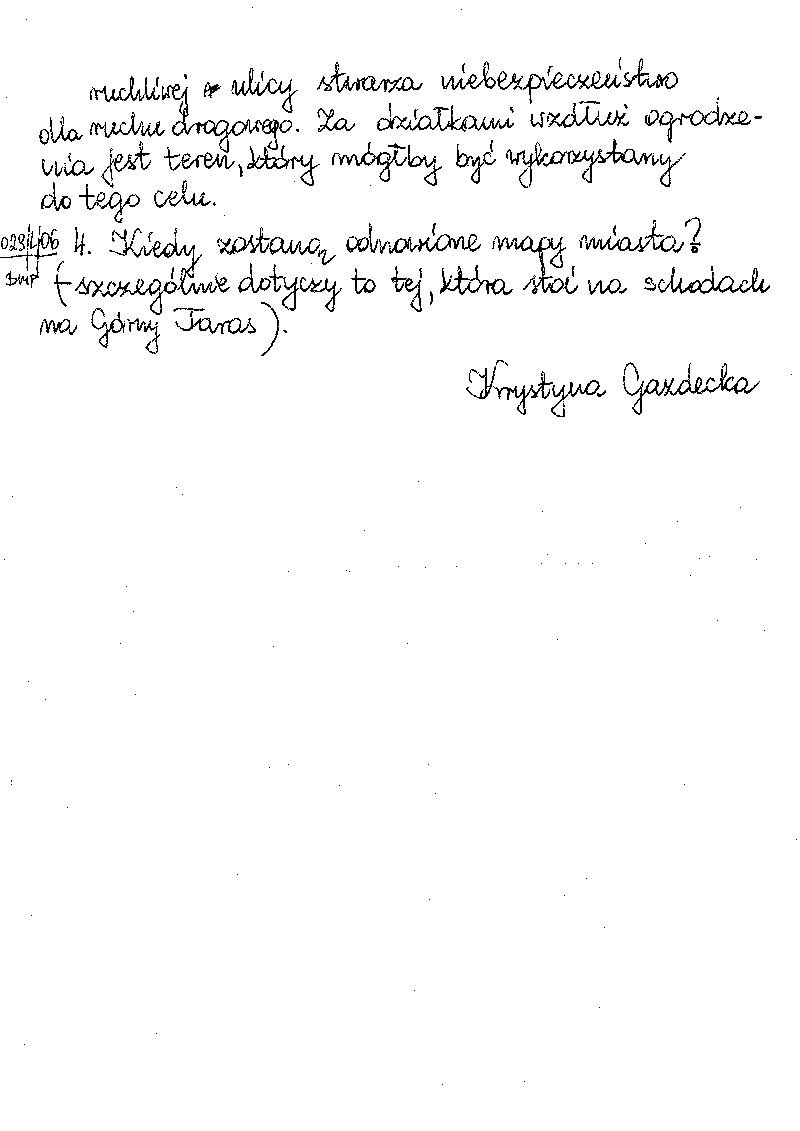 ruchliwej ulicy stwarza niebezpieczeństwo
dla ruchu drogowego. Za działkami wzdłuż ogrodze-
nia jest teren, który mógłby być wykorzystany
do tego celu.
4. Kiedy zostaną odnowione mapy miasta?
(szczególnie dotyczy to tej, która stoi na schodach
na Górny Taras).
Krystyna Gazdecka